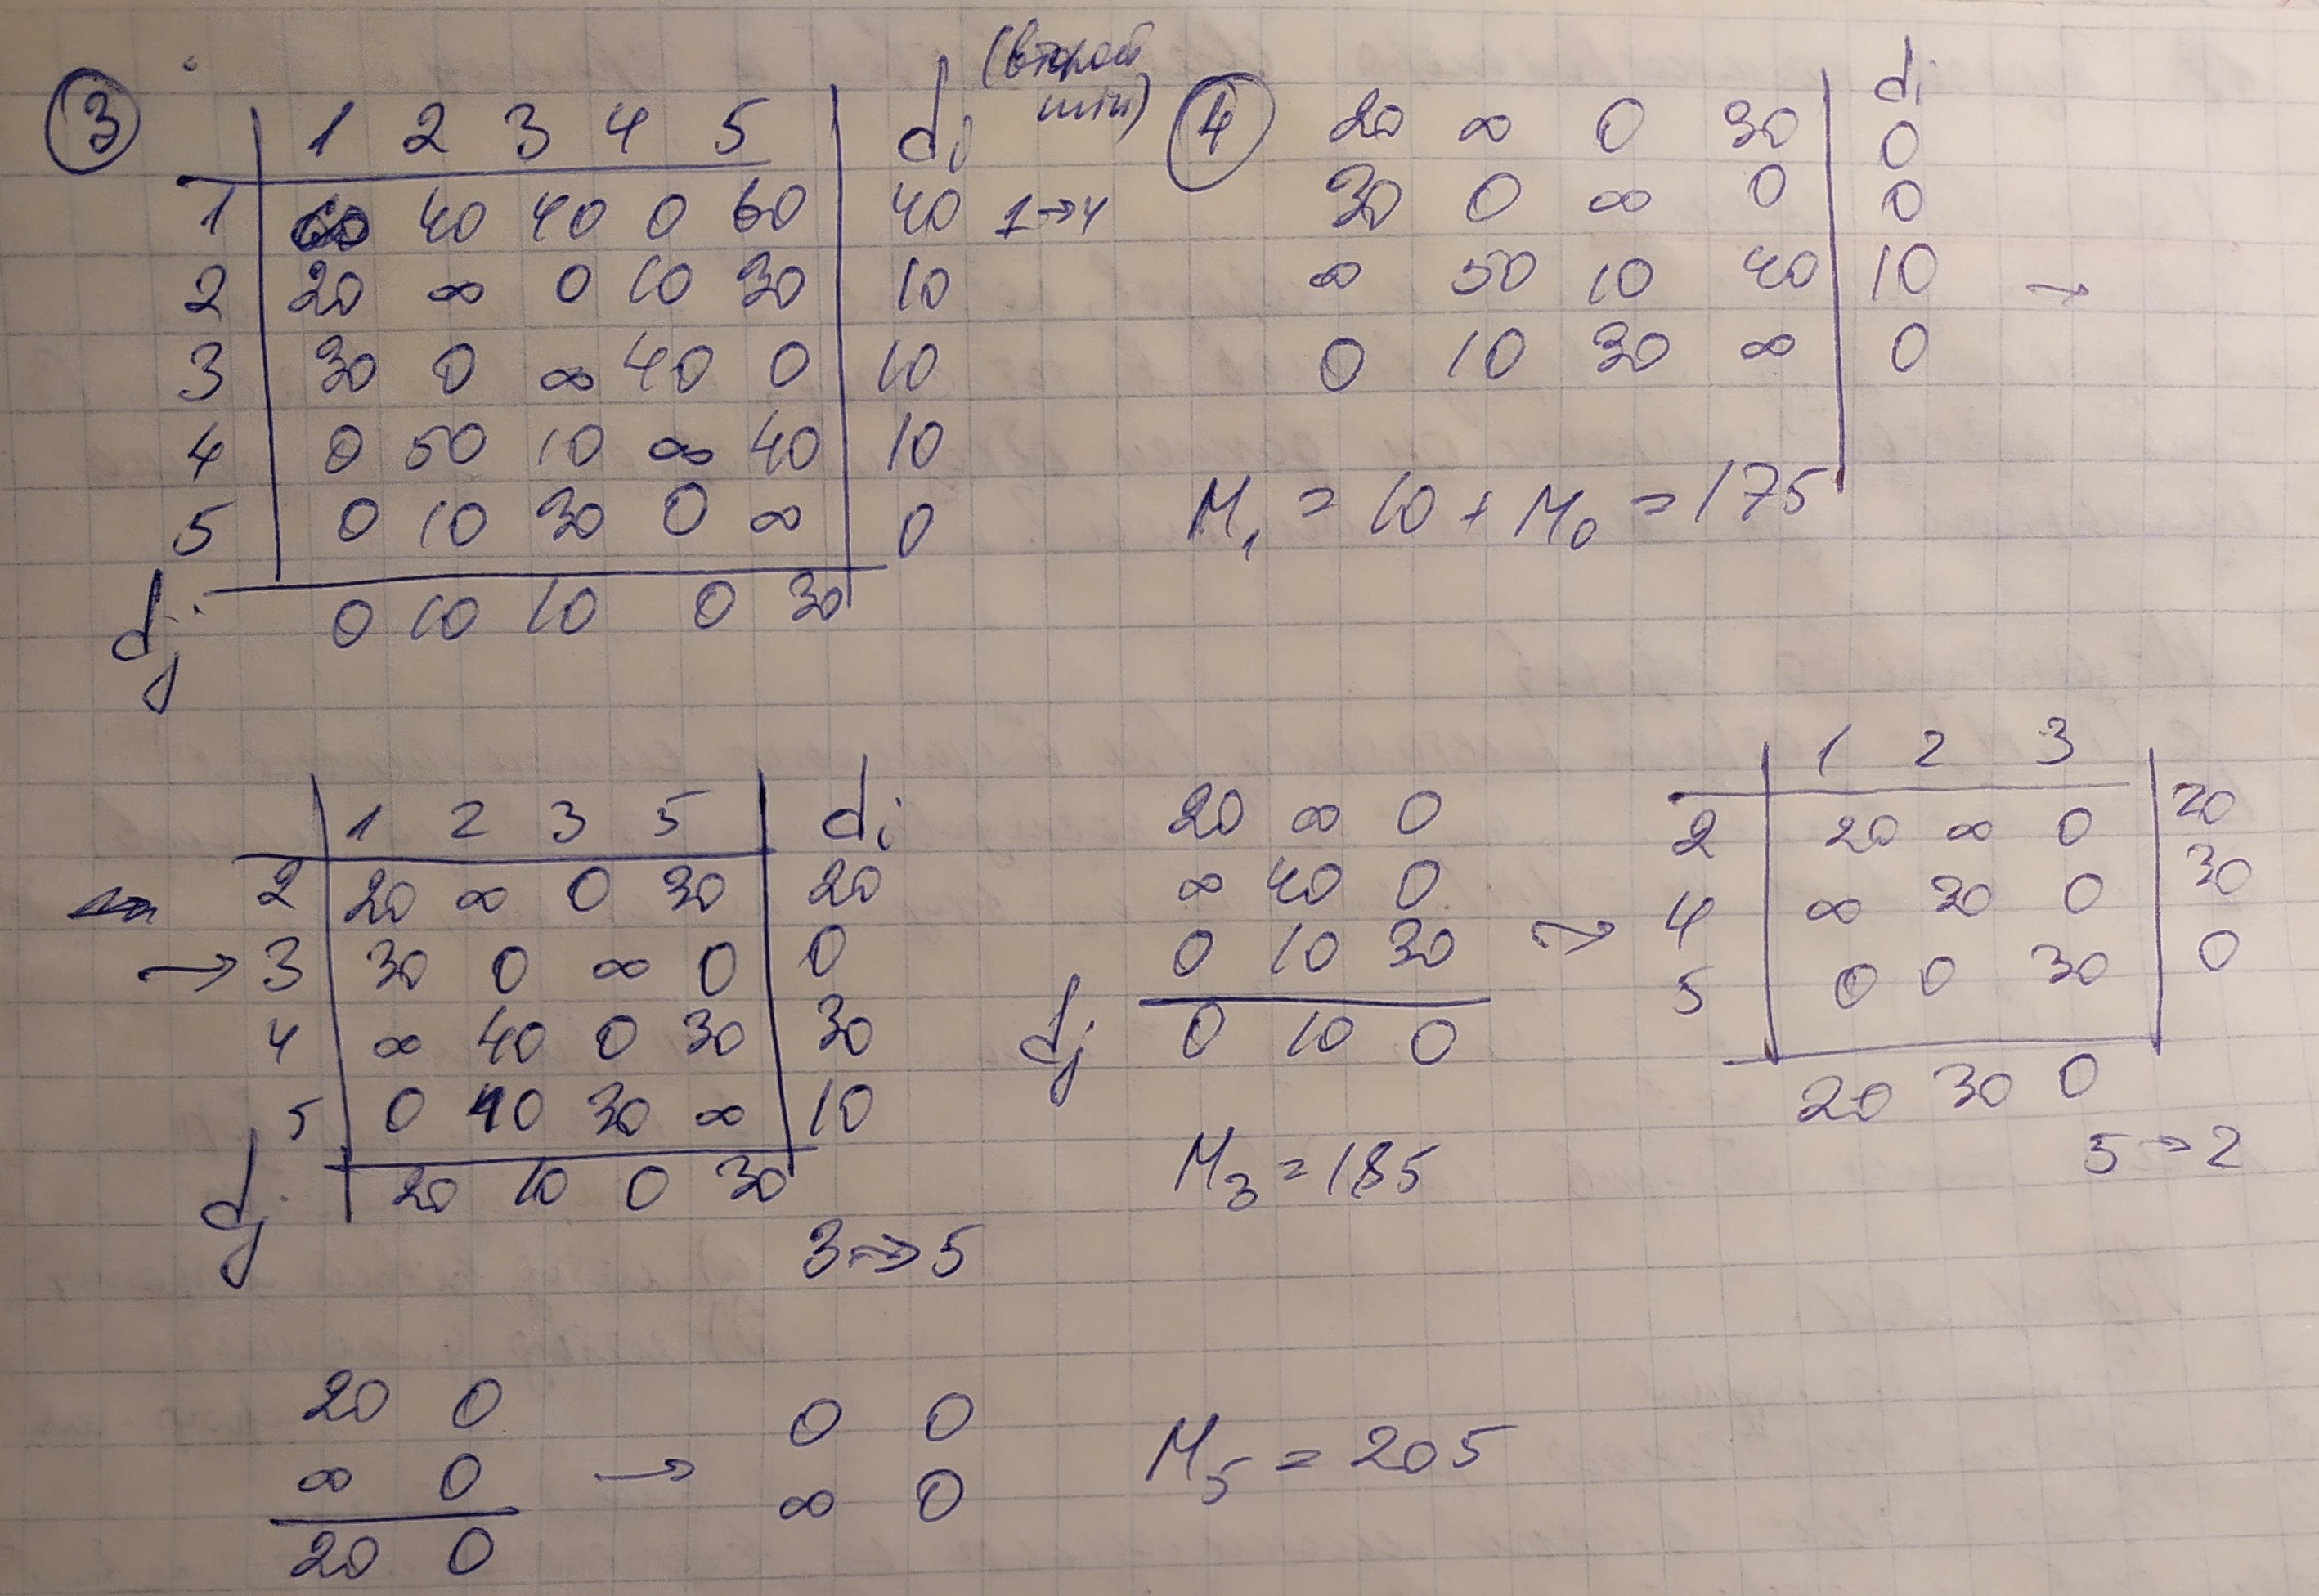 ③ 1 2 3 4 5 di (второй min)
1 ∞ 40 40 0 60 40 1→4
2 20 ∞ 0 10 30 10
3 30 0 ∞ 40 0 10
4 0 50 10 ∞ 40 10
5 0 10 30 0 ∞ 0
dj 0 10 10 0 30
④ di
20 ∞ 0 30 0
30 0 ∞ 0 0
∞ 50 10 40 10 →
0 10 30 ∞ 0
M₁ = 10 + M₀ = 175
1 2 3 5 di
2 20 ∞ 0 30 20
→ 3 30 0 ∞ 0 0
4 ∞ 40 0 30 30
5 0 10 30 ∞ 10
dj 20 10 0 30
3→5
20 ∞ 0
∞ 40 0
0 10 30 →
dj 0 10 0
M₃ = 185
1 2 3
2 20 ∞ 0 20
4 ∞ 30 0 30
5 0 0 30 0
20 30 0
5→2
20 0
∞ 0 →
20 0
0 0
∞ 0
M₅ = 205